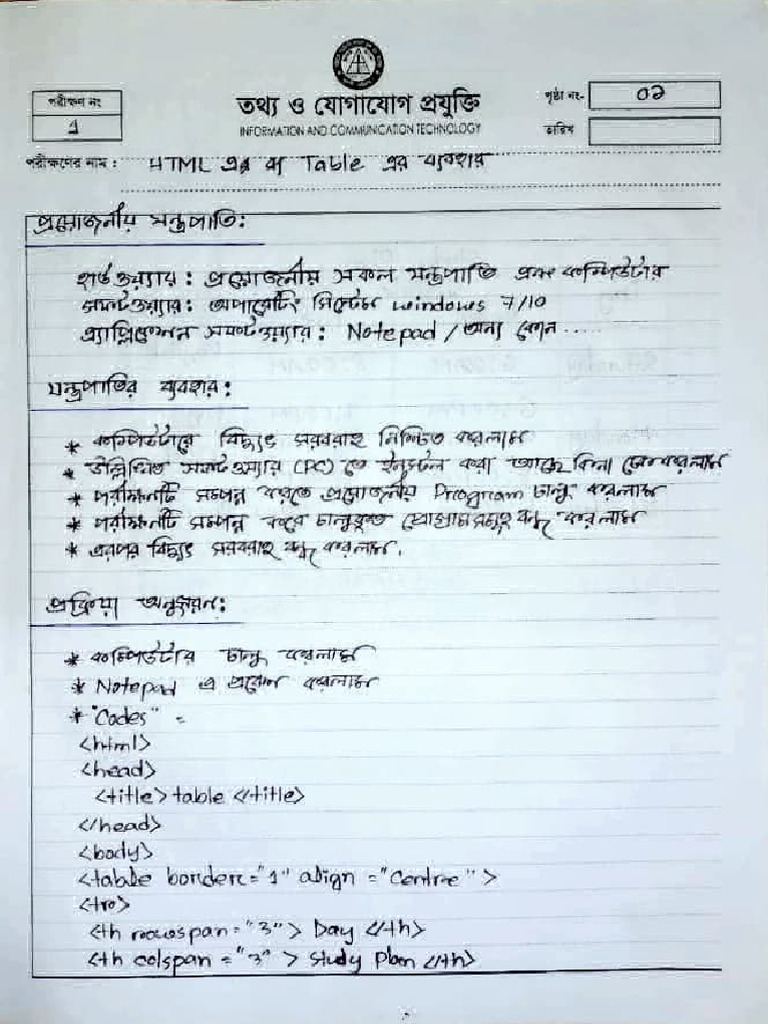 পরীক্ষণ নং
1
তথ্য ও যোগাযোগ প্রযুক্তি
INFORMATION AND COMMUNICATION TECHNOLOGY
পৃষ্ঠা নং-
02
তারিখ
পরীক্ষণের নাম : HTML এর Table এর ব্যবহার
প্রয়োজনীয় যন্ত্রপাতি:
হার্ডওয়্যার : প্রয়োজনীয় সকল যন্ত্রপাতি এবং কম্পিউটার
সফটওয়্যার: অপারেটিং সিস্টেম windows 7/10
এ্যাপ্লিকেশন সফটওয়্যার: Notepad / অন্য কোন .....
যন্ত্রপাতির ব্যবহার:
* কম্পিউটারে বিদ্যুৎ সরবরাহ নিশ্চিত করলাম
* উল্লিখিত সফটওয়্যার (PC) তে ইনস্টল করা আছে কিনা করলাম
* পরীক্ষণটি সম্পন্ন করতে প্রয়োজনীয় Program চালু করলাম
* পরীক্ষণটি সম্পন্ন করে চালুকৃত প্রোগ্রামসমূহ বন্ধ করলাম
* এরপর বিদ্যুৎ সরবরাহ বন্ধ করলাম.
প্রক্রিয়া অনুসরন:
* কম্পিউটার চালু করলাম
* Notepad এ প্রবেশ করলাম
* "Codes" =
<html>
<head>
<title> table </title>
</head>
<body>
<table border="1" align ="Centre" >
<tr>
<th rowspan="3" > Day </th>
<th colspan ="3" > Study Plan </th>